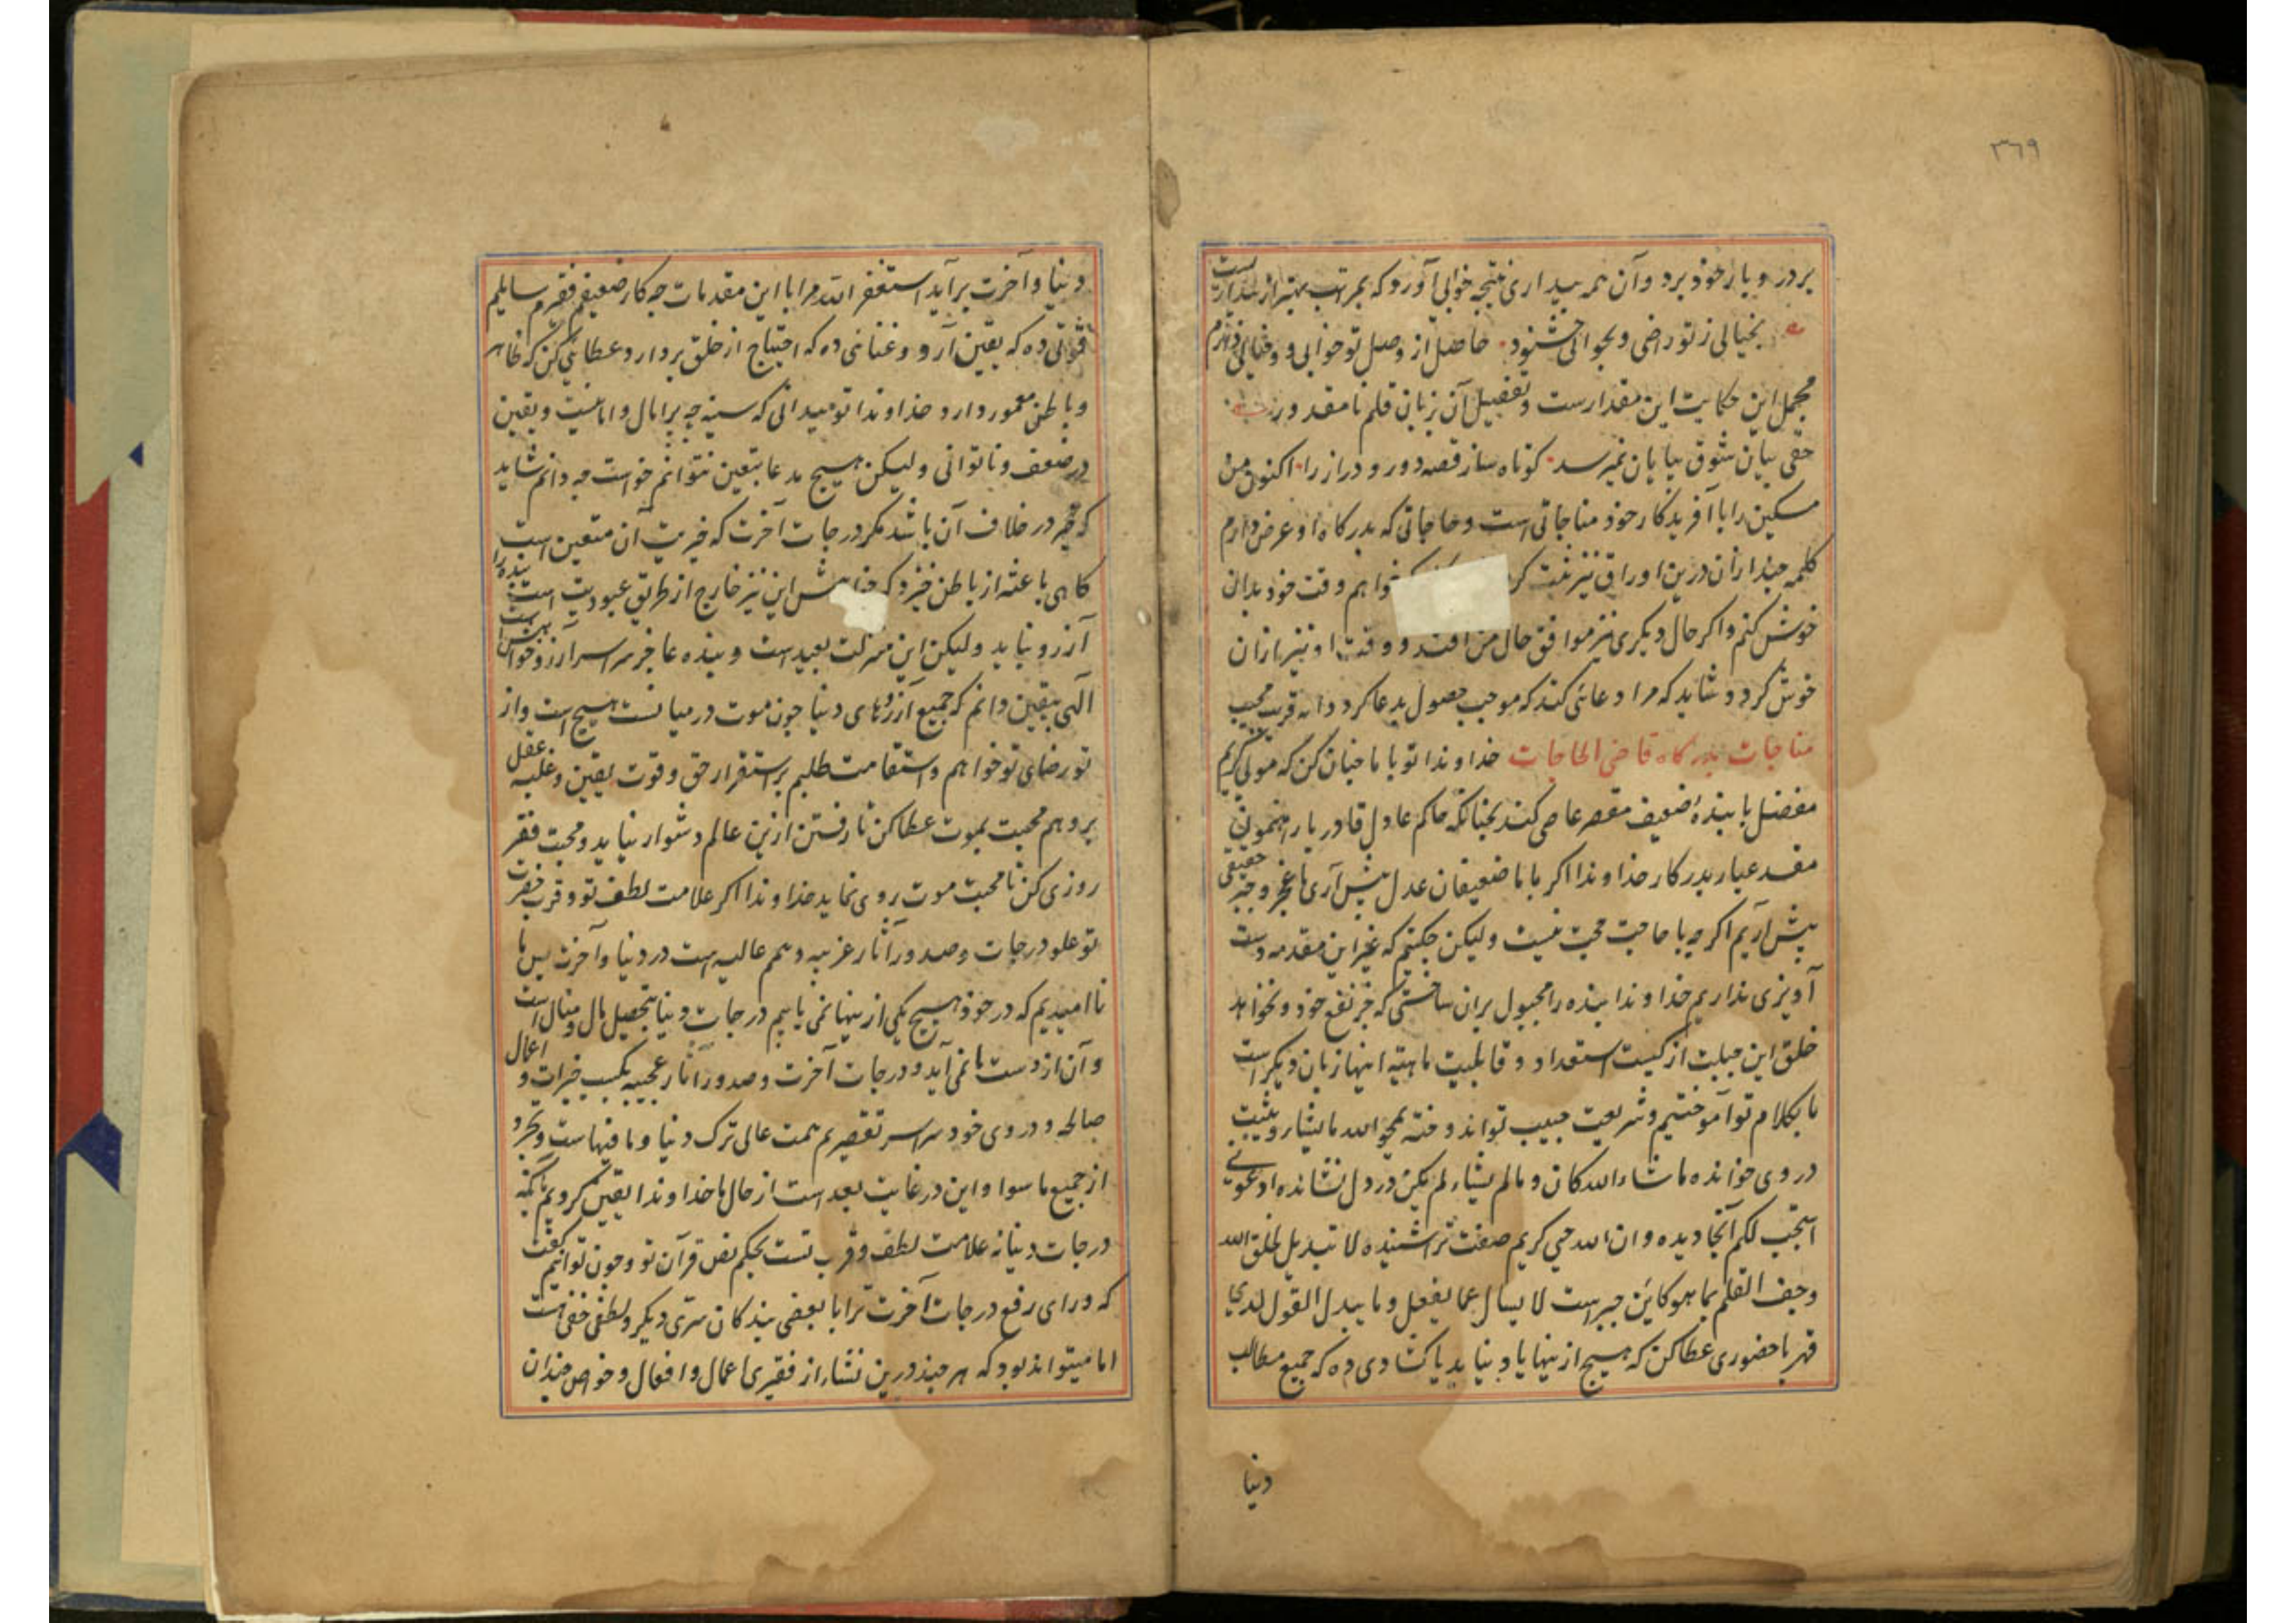 ٣٦٩
بر در و یار خود برد و آن همه بیداری نتیجه خوابی آورد که بمراتب بهتر از بیداریست
بخیالی ز تو راضی و بخوابی خشنود حاصل از وصل تو خوابی و خیالی دارم
مجمل این حکایت این مقدارست و تفصیل آن بزبان قلم نا مقدور
حقی بیان شوق بپایان نمیرسد کوتاه ساز قصه دور و دراز را اکنون من
مسکین را با آفریدکار خود مناجاتی است و حاجاتی که بدرکاه او عرض دارم
کلمه چند از آن درین اوراق نیز ثبت خواهم وقت خود بدان
خوش کنم و اکر حال دیکری نیز موافق حال من افتد و وقت او نیز ازان
خوش کردد و شاید که مرا دعائی کند که موجب حصول مدعا کردد انه قریب مجیب
مناجات بدرکاه قاضی الحاجات خداوندا تو با ما چنان کن که مولی کریم
مفضل با بندهٔ ضعیف مقصر عاصی کند نچنانکه حاکم عادل قادر با
مفسد عیار بدرکار خداوندا اکر با ما ضعیفان عدل پیش آری ما عجز و جبر حقیقی
پیش آریم اکر چه با حاجت حجت نیست ولیکن چکنیم که غیر این مقدمه دست
آویزی نداریم خداوندا بنده را مجبول بران ساختی که جز نفع خود نخواهد
خلق این جبلت از کیست استعداد و قابلیت ماهیة اینها زبان دیکر است
ما بکلام تو آموختیم و شریعت حبیب تو اندوخته یمحو الله ما یشاء و یثبت
در وی خوانده ما شاء الله کان و ما لم یشاء لم یکن در دل نشانده ادعونی
استجب لکم آنجا دیده و ان الله حیی کریم صفت تر اشنیده لا تبدیل لخلق الله
وجف القلم بما هو کاین جبر است لا یسال عما یفعل و ما یبدل القول لدی
قهر با حضوری عطا کن که هیچ از ینها یاد نیاید یا کشادی ده که جمیع مطالب
دنیا
دنیا و آخرت بر آید استغفر الله مرا با این مقدمات چه کار ضعیفم فقیرم سایلیم
قوتی ده که یقین آرد و غنائی ده که احتیاج از خلق بردارد و عطائی کن که ظاهر
و باطن معمور دارد خداوندا تو میدانی که سینه چه پر امال و امانیست و یقین
در ضعف و ناتوانی ولیکن هیچ مدعا بتعین نتوانم خواست چه دانم شاید
که خیر در خلاف آن باشد مکر درجات آخرت که خیریت آن متعین است
کاهی باعثه از باطن خیزد که خواهش این نیز خارج از طریق عبودیت است بنده را
آرزو نباید ولیکن این منزلت بعید است و بنده عاجز سراسر آرزو خواهش است
الهی بیقین دانم که جمیع آرزوهای دنیا چون موت در میانست هیچ است و از
تو رضای تو خواهم و استقامت طلبم بر استقرار حق و قوت یقین و غلبه عقل
بر وهم محبت بموت عطا کن تا رفتن ازین عالم دشوار نیاید و محبت فقر
روزی کن تا محبت موت روی نماید خداوندا اکر علامت لطف تو و قرب حضرت
تو علو درجات و صدور آثار غریبه و همم عالیه است در دنیا و آخرت پس ما
نا امیدیم که در خود هیچ یکی از ینها نمی یابیم درجات دنیا بتحصیل مال و منال است
و آن از دست ما نمی آید و درجات آخرت و صدور آثار عجیبه بکسب خیرات و اعمال
صالحه و در وی خود سراسر تقصیریم همت عالی ترک دنیا و ما فیهاست و تجرد
از جمیع ما سوا و این در غایت بعد است از حال ما خداوندا یقین کردیم
درجات دنیا نه علامت لطف و قرب تست بحکم نص قرآن تو و چون توانیم کفت
که ورای رفع درجات آخرت ترا با بعضی بندکان سری دیکر و لطفی خفی است
اما میتواند بود که هر چند درین نشاء از فقیری اعمال و افعال و خواص چندان